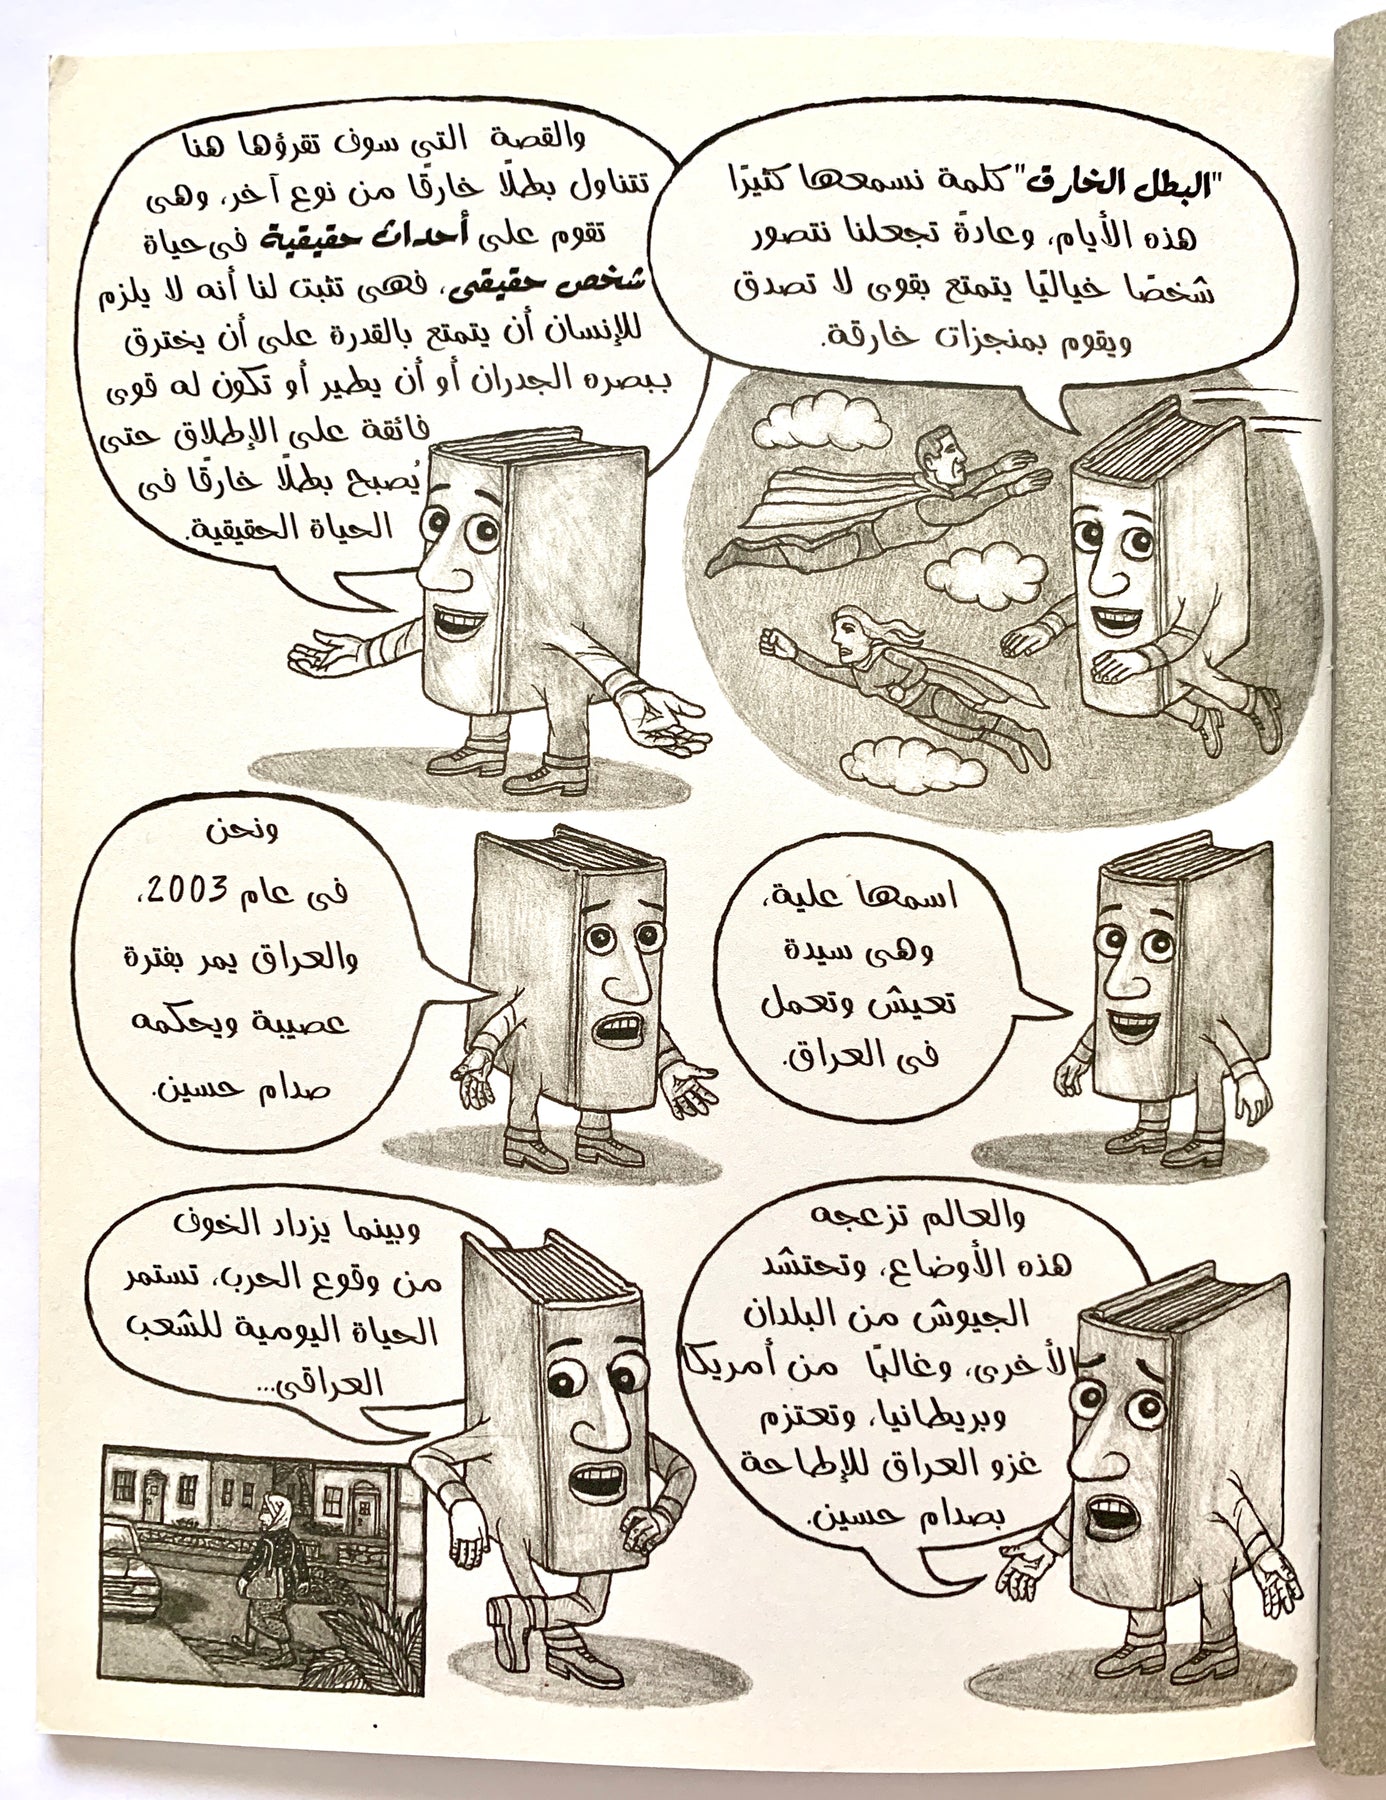 "البطل الخارق" كلمة نسمعها كثيرًا
هذه الأيام، وعادةً تجعلنا نتصور
شخصًا خياليًا يتمتع بقوى لا تصدق
ويقوم بمنجزات خارقة.
والقصة التي سوف تقرؤها هنا
تتناول بطلًا خارقًا من نوع آخر، وهى
تقوم على أحداث حقيقية فى حياة
شخص حقيقى، فهى تثبت لنا أنه لا يلزم
للإنسان أن يتمتع بالقدرة على أن يخترق
ببصره الجدران أو أن يطير أو تكون له قوى
فائقة على الإطلاق حتى
يُصبح بطلًا خارقًا فى
الحياة الحقيقية.
اسمها علية،
وهى سيدة
تعيش وتعمل
فى العراق.
ونحن
فى عام 2003،
والعراق يمر بفترة
عصيبة ويحكمه
صدام حسين.
والعالم تزعجه
هذه الأوضاع، وتحتشد
الجيوش من البلدان
الأخرى، وغالبًا من أمريكا
وبريطانيا، وتعتزم
غزو العراق للإطاحة
بصدام حسين.
وبينما يزداد الخوف
من وقوع الحرب، تستمر
الحياة اليومية للشعب
العراقى...